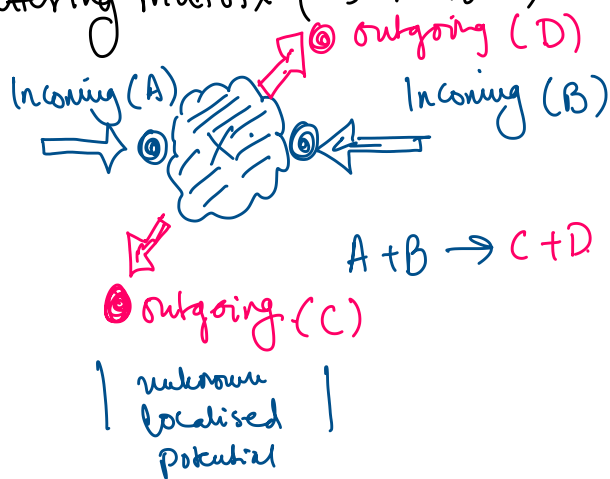 outgoing (D)
Incoming (A)
Incoming (B)
X
A + B → C + D
outgoing (C)
unknown
localised
potential